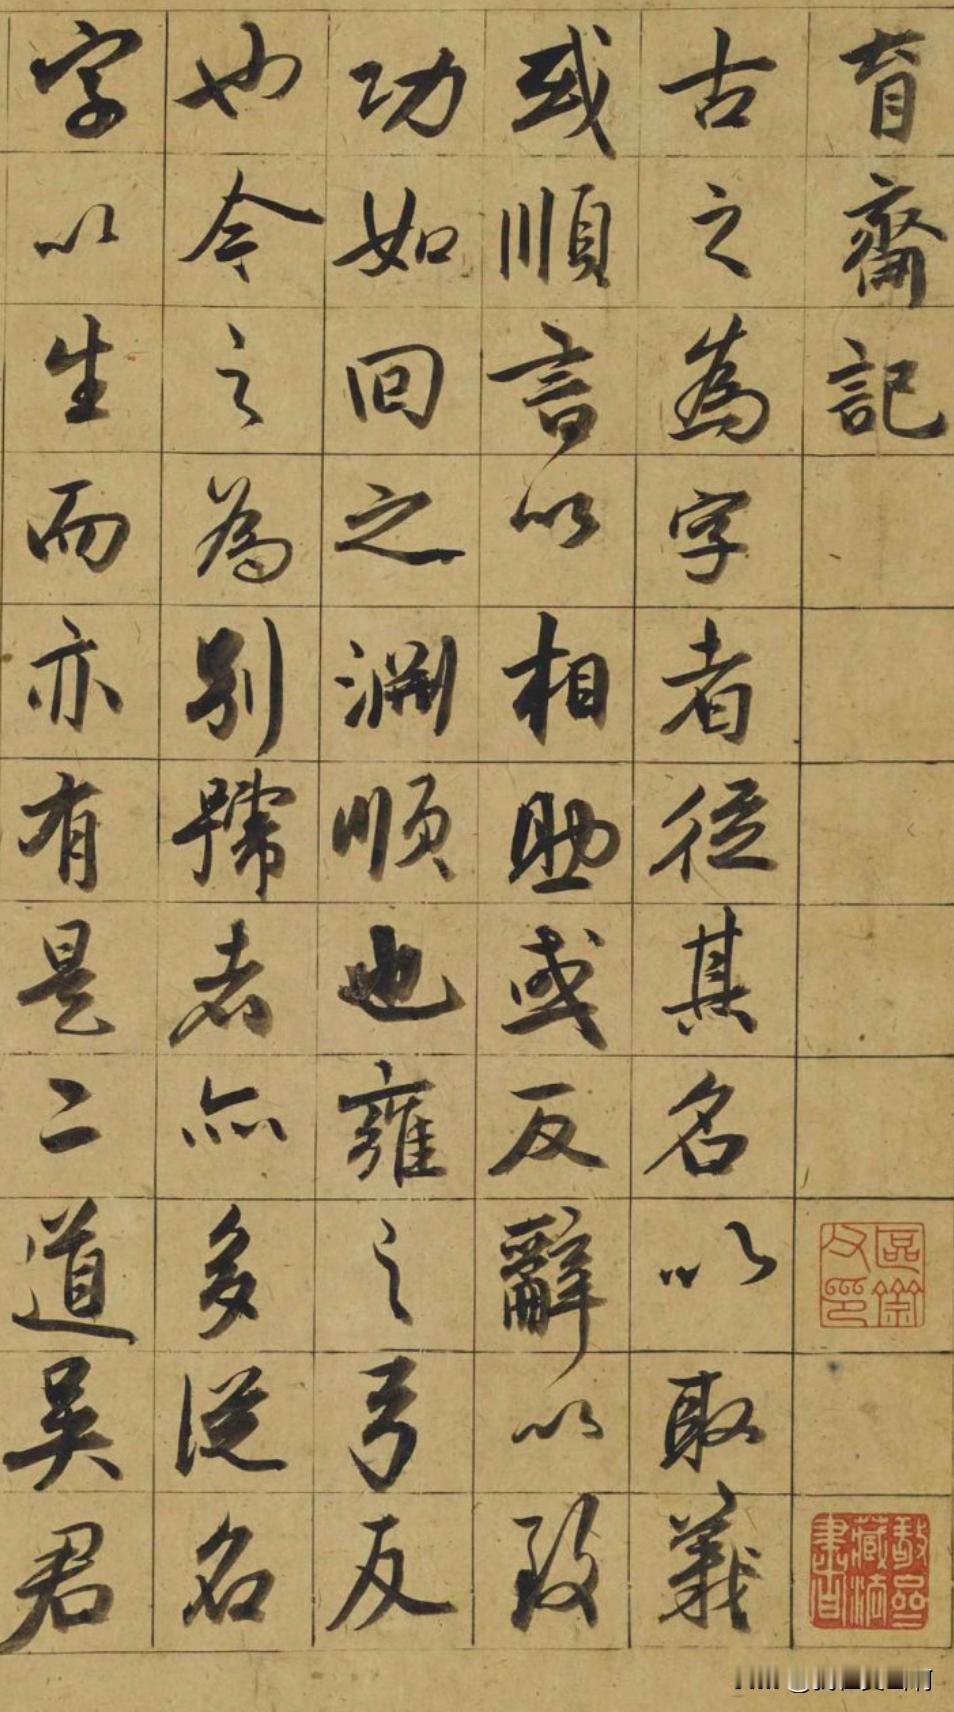 育齋記
古之為字者從其名以取義
或順言以相助或反辭以致
功如回之淵順也雍之弓反
也今之為別號者亦多從名
字以生而亦有是二道吳君